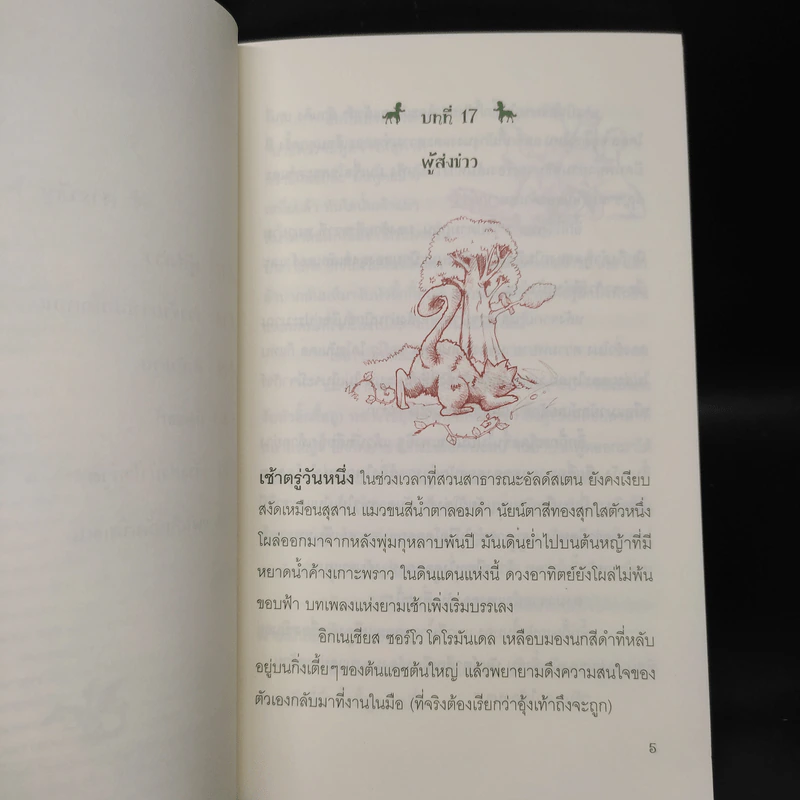 บทที่ 17
ผู้ส่งข่าว
เช้าตรู่วันหนึ่ง ในช่วงเวลาที่สวนสาธารณะอัลด์สเตน ยังคงเงียบ
สงัดเหมือนสุสาน แมวขนสีน้ำตาลอมดำ นัยน์ตาสีทองสุกใสตัวหนึ่ง
โผล่ออกมาจากหลังพุ่มกุหลาบพันปี มันเดินย่ำไปบนต้นหญ้าที่มี
หยาดน้ำค้างเกาะพราว ในดินแดนแห่งนี้ ดวงอาทิตย์ยังโผล่ไม่พ้น
ขอบฟ้า บทเพลงแห่งยามเช้าเพิ่งเริ่มบรรเลง
อิกเนเชียส ซอร์โว โคโรมันเดล เหลือบมองนกสีดำที่หลับ
อยู่บนกิ่งเตี้ยๆของต้นแอชต้นใหญ่ แล้วพยายามดึงความสนใจของ
ตัวเองกลับมาที่งานในมือ (ที่จริงต้องเรียกว่าอุ้งเท้าถึงจะถูก)
5